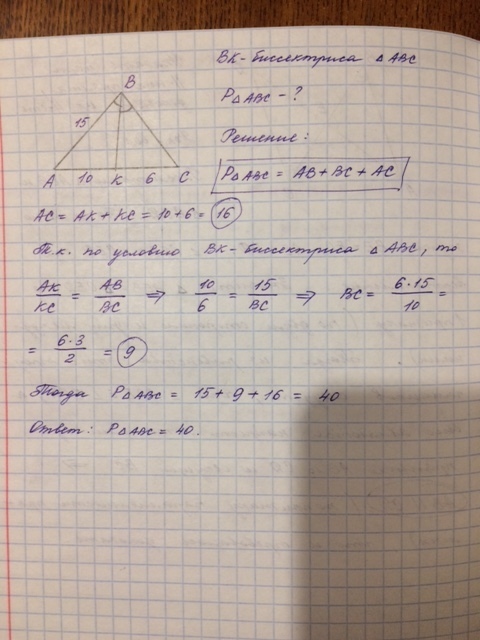 BK - биссектриса △ ABC
B
P△ABC - ?
15
Решение:
A 10 K 6 C
P△ABC = AB + BC + AC
AC = AK + KC = 10 + 6 = 16
Т.к. по условию BK - биссектриса △ ABC, то
AK/KC = AB/BC ⇒ 10/6 = 15/BC ⇒ BC = 6·15/10 =
= 6·3/2 = 9
Тогда P△ABC = 15 + 9 + 16 = 40
Ответ: P△ABC = 40.